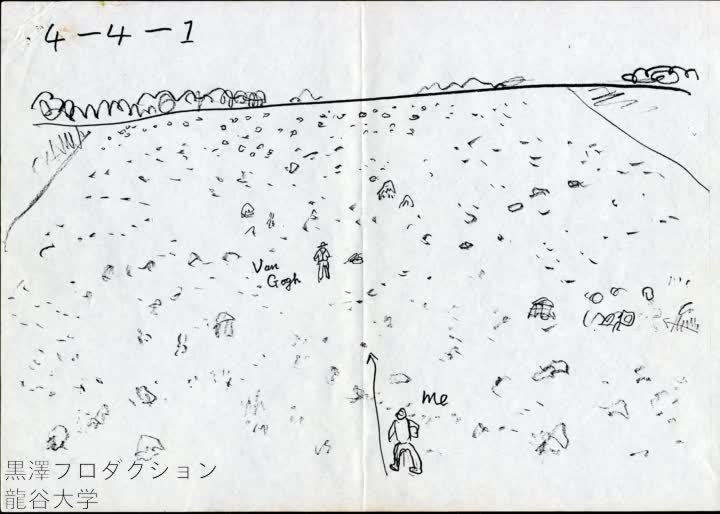 4-4-1
Van
Gogh
me
黒澤プロダクション
龍谷大学